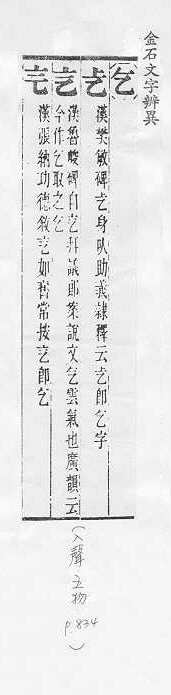 金石文字辨異
乞
𠫤漢樊敏碑𠫤身以助義隸釋云𠫤即乞字
𠮷漢魯峻碑自乞拜議郎案說文气雲氣也廣韻云
今作乞取之乞
漢張納功德敘乞如舊常按乞即乞
(入聲 五物
p.834)